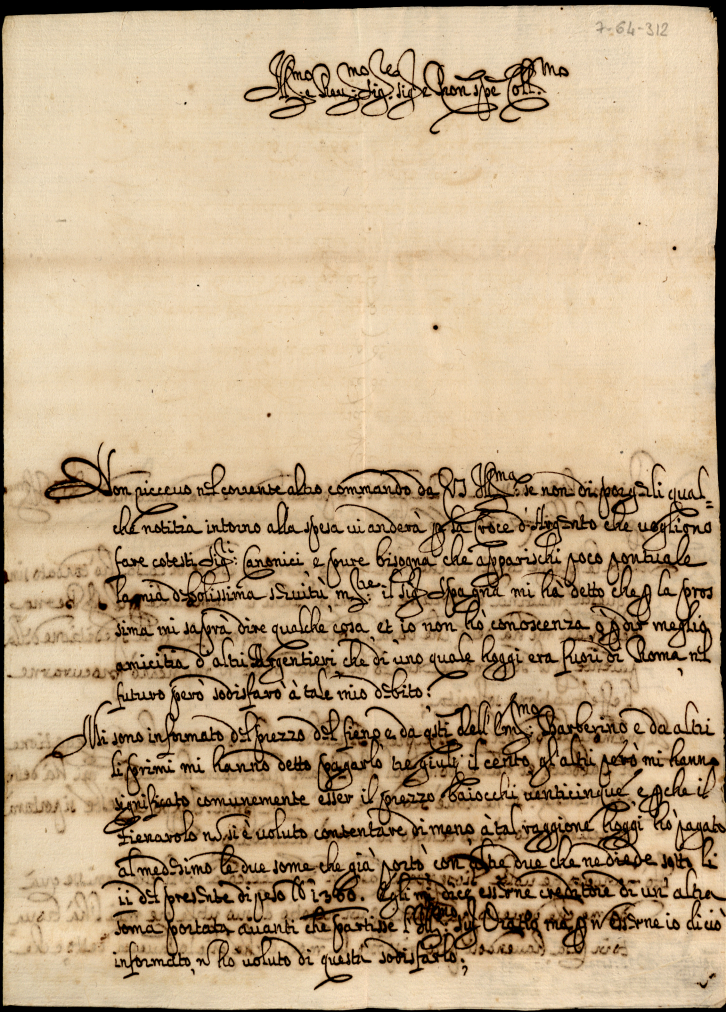 7-64-312
Ill.mo e Rev.mo Sig.r Sig.r e Pron spe Coll.mo
Non riceuo nel corrente altro commando da V.S. Ill.ma se non di porgerli qual=
che notitia intorno alla spesa ui anderà p la Croce d'Argento che uogliono
fare cotesti Sig.ri Canonici e pure bisogna che apparischi poco pontuale
la mia debolissima seruitù m.re il Sig.r Spagna mi ha detto che p la pros
sima mi saprà dire qualche cosa, et io non hò conoscenza o p dir meglio
amicitia d'altri Argentieri che di uno quale hoggi era fuori di Roma, nel
futuro però sodisfarò à tale mio debito;
Mi sono informato del prezzo del fieno e da q.sti dell'Em.mo Barberino e da altri
li primi mi hanno detto pagarlo tre giulij il cento, gl'altri però mi hanno
significato comunemente esser il prezzo baiocchi uenticinque e pche il
Fienarolo n si è uoluto contentare di meno à tal raggione hoggi hò pagato
al medesimo le due some che già portò con altre due che ne diede sotto li
ii del presente di peso lb 1360. Egli mi dice esserne creditore di un'altra
soma portata auanti che partisse l'Ill.mo Sig.r ma p n esserne io di ciò
informato, n ho uoluto di questa sodisfarlo;